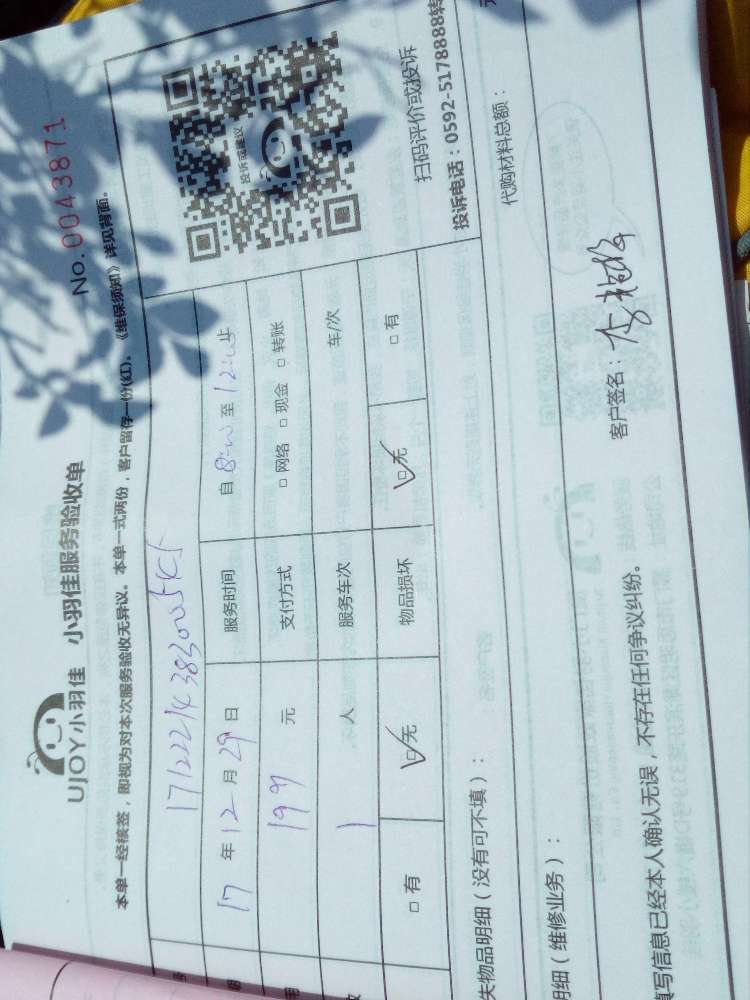 UJOY小羽佳 小羽佳服务验收单
No.0043871
本单一经核签，即视为对本次服务验收无异议。本单一式两份，客户留存一份(红)。《维保须知》详见背面。
17 年 12 月 29 日 服务时间 自 8:00 至 12:00 止
199 元 支付方式 □ 网络 □ 现金 □ 转账
1 人 服务车次 车/次
□ 有 □无 物品损坏 □无 □ 有
投诉或建议
扫码评价或投诉
投诉电话：0592-5178888转
失物品明细（没有可不填）：
明细（维修业务）： 代购材料总额：
填写信息已经本人确认无误，不存在任何争议纠纷。 客户签名：